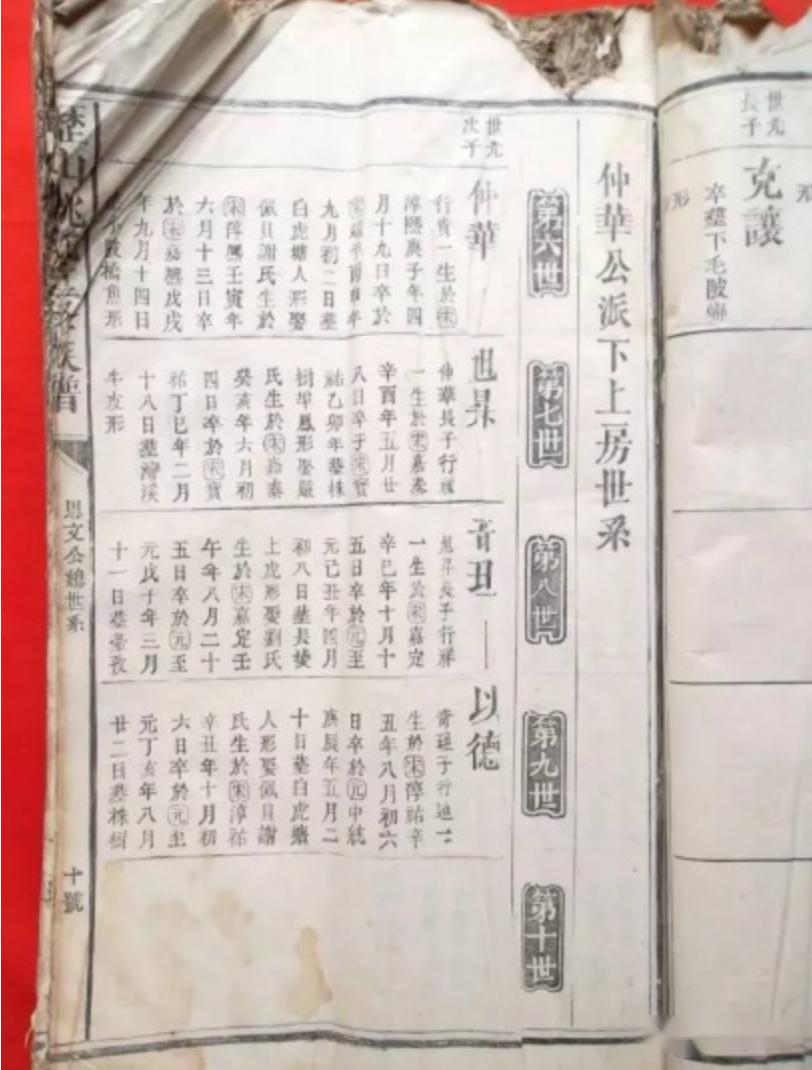 世元
長子
克讓
卒葬下毛陂
形
仲華公派下上房世系
第六世
第七世
第八世
第九世
第十世
世元
次子
仲華
行貴一生於宋
淳熙庚子年四
月十九日卒於
九月初二日葬
白虎塘人形娶
佩貝謝氏生於
宋淳熙壬寅年
六月十三日卒
於宋嘉熙戊戌
年九月十四日
小陂橋魚形
世昇
仲華長子行
一生於宋嘉泰
辛酉年五月廿
八日卒于宋寶
祐乙卯年葬株
樹埠鳳形娶嚴
氏生於宋嘉泰
癸亥年六月初
四日卒於宋寶
祐丁巳年二月
十八日葬灣溪
牛皮形
長子行祥
一生於宋嘉定
辛巳年十月十
五日卒於元至
元己丑年四月
初八日葬長塘
上虎形娶劉氏
生於宋嘉定壬
午年八月二十
五日卒於元至
元戊子年三月
十一日葬
以德
子行進一
生於宋淳祐辛
丑年八月初六
日卒於元中統
庚辰年五月二
十日葬白虎塘
人形娶佩貝謝
氏生於宋淳祐
辛丑年十月初
六日卒於元至
元丁亥年八月
廿二日葬株樹
思文公總世系
十號
族譜